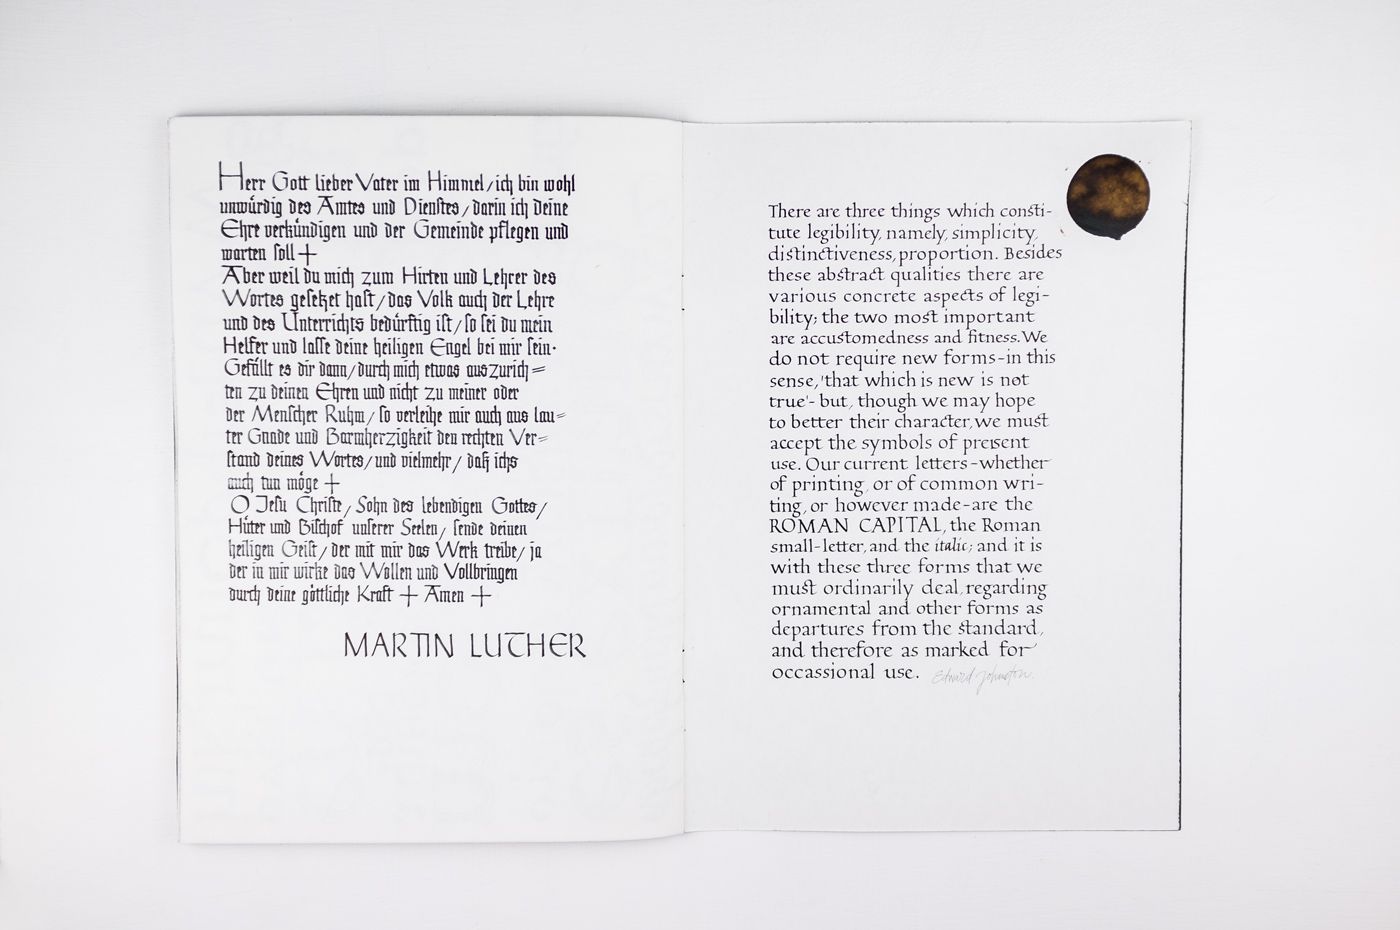 Herr Gott lieber Vater im Himmel/ich bin wohl
unwürdig des Amtes und Dienstes/darin ich deine
Ehre verkündigen und der Gemeinde pflegen und
warten soll +
Aber weil du mich zum Hirten und Lehrer des
Wortes gesetzet hast/das Volk auch der Lehre
und des Unterrichts bedürftig ist/so sei du mein
Helfer und lasse deine heiligen Engel bei mir sein·
Gefällt es dir dann/durch mich etwas auszurich=
ten zu deinen Ehren und nicht zu meiner oder
der Menscher Ruhm/so verleihe mir auch aus lau=
ter Gnade und Barmherzigkeit den rechten Ver=
stand deines Wortes/und vielmehr/daß ichs
auch tun möge +
O Jesu Christe/Sohn des lebendigen Gottes/
Hüter und Bischof unserer Seelen/sende deinen
heiligen Geist/der mit mir das Werk treibe/ja
der in mir wirke das Wollen und Vollbringen
durch deine göttliche Kraft + Amen +
MARTIN LUTHER
There are three things which consti-
tute legibility, namely, simplicity,
distinctiveness, proportion. Besides
these abstract qualities there are
various concrete aspects of legi-
bility; the two most important
are accustomedness and fitness. We
do not require new forms-in this
sense, 'that which is new is not
true'- but, though we may hope
to better their character, we must
accept the symbols of present
use. Our current letters-whether
of printing, or of common wri-
ting, or however made-are the
ROMAN CAPITAL, the Roman
small-letter, and the italic; and it is
with these three forms that we
must ordinarily deal, regarding
ornamental and other forms as
departures from the standard,
and therefore as marked for
occassional use. Edward Johnston.